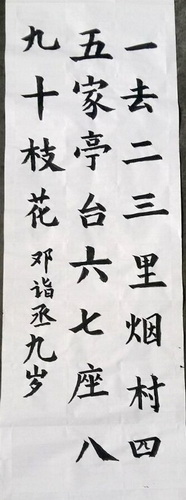 一去二三里烟村四
五家亭台六七座八
九十枝花
邓诣丞九岁